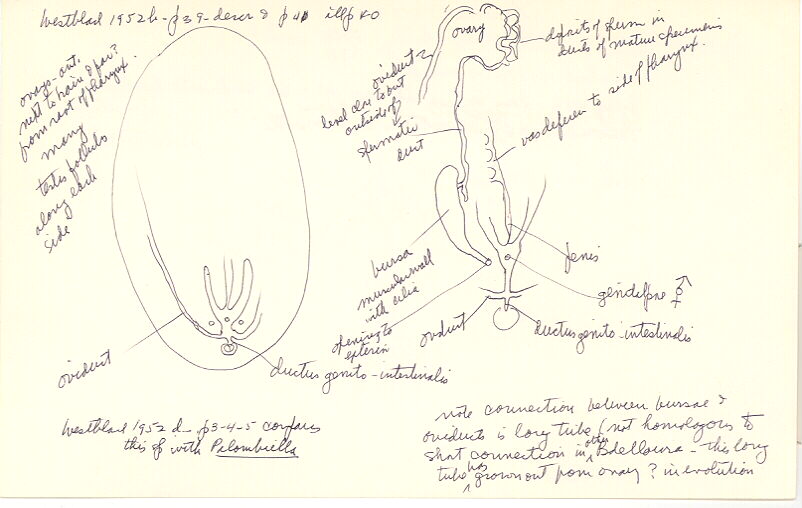 Westblad 1952b - p39 - descr & p40 illp 40
ovary - ant.
next to brain & far?
from root of pharynx.
many
testis follicles
along each
side
oviduct
ductus genito-intestinalis
ovary
deposits of sperm in
ducts of mature specimens
oviduct
level close to but
outside of
spermatic
duct
vas deferens to side of pharynx.
bursa
muscular wall
with cilia
opening to
exterior
penis
genital pore ♂♀
oviduct
ductus genito-intestinalis
Westblad 1952 d - p3-4-5 compares
this sp with Palombiella
note connection between bursae &
oviducts is long tube (not homologous to
short connection in other Bdelloura - this long
tube has grown out from ovary? in evolution